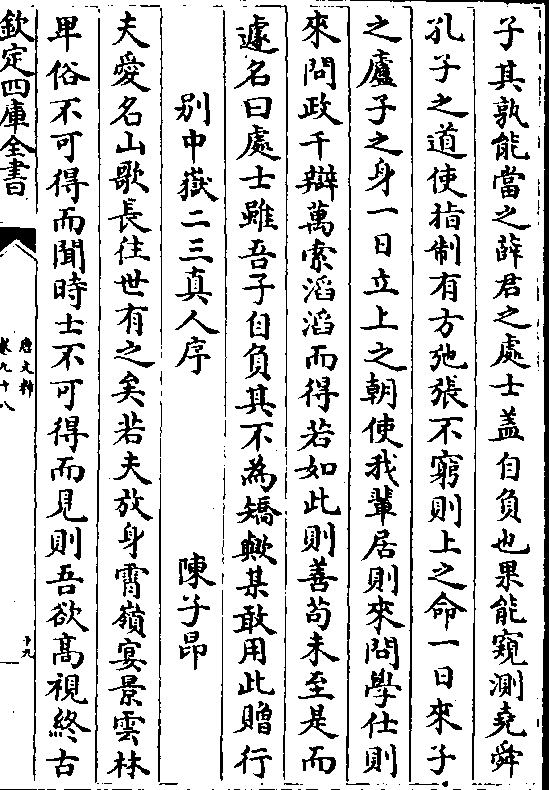 子其孰能當之薛君之處士蓋自負也果能窺測堯舜
孔子之道使指制有方弛張不窮則上之命一日來子
之廬子之身一日立上之朝使我輩居則來問學仕則
來問政千辯萬索滔滔而得若如此則善苟未至是而
遽名曰處士雖吾子自負其不為矯歟某敢用此贈行
别中嶽二三真人序 陳子昂
夫愛名山歌長往世有之矣若夫放身霄嶺宴景雲林
卑俗不可得而聞時士不可得而見則吾欲髙視終古
欽定四庫全書
唐文粹
卷九十八
十九